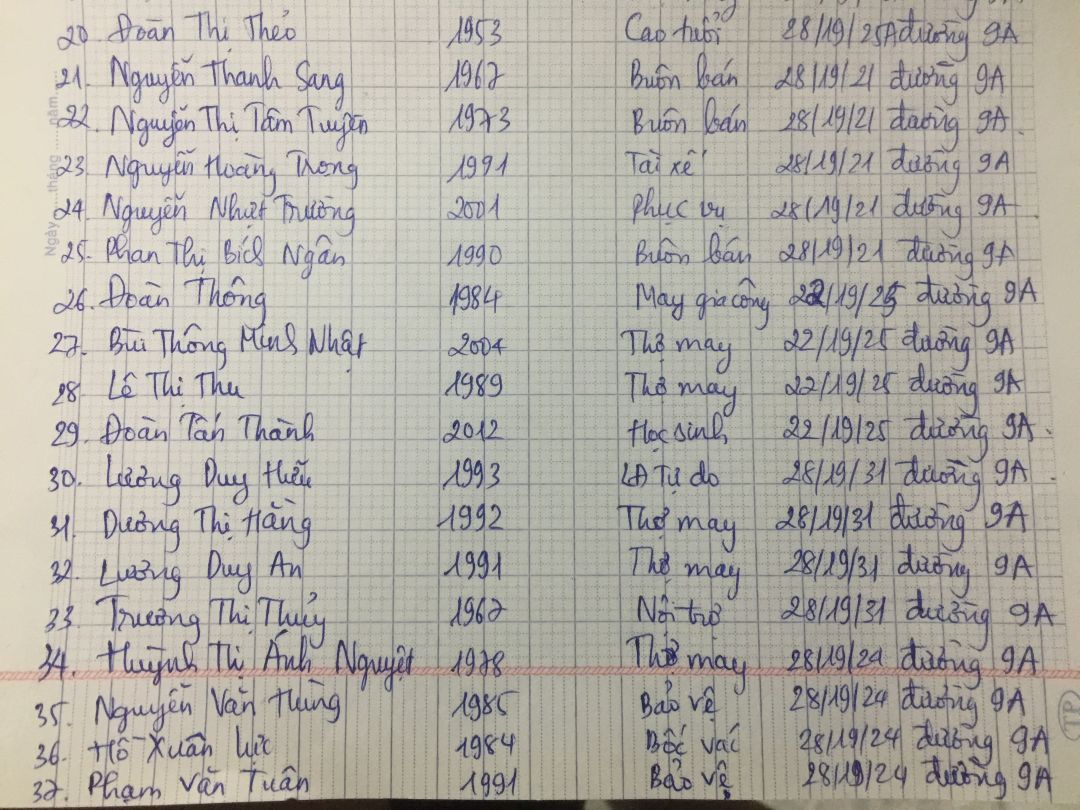 20. Đoàn Thị Thẻo 1953 Cao tuổi 28/19/25A đường 9A
21. Nguyễn Thanh Sang 1967 Buôn bán 28/19/21 đường 9A
22. Nguyễn Thị Tâm Tuyền 1973 Buôn bán 28/19/21 đường 9A
23. Nguyễn Hoàng Trong 1991 Tài xế 28/19/21 đường 9A
24. Nguyễn Nhựt Trường 2001 Phục vụ 28/19/21 đường 9A
25. Phan Thị Bích Ngân 1990 Buôn bán 28/19/21 đường 9A
26. Đoàn Thông 1984 May gia công 22/19/25 đường 9A
27. Bùi Thông Minh Nhật 2004 Thợ may 22/19/25 đường 9A
28. Lê Thị Thu 1989 Thợ may 22/19/25 đường 9A
29. Đoàn Tấn Thành 2012 Học sinh 22/19/25 đường 9A
30. Lương Duy Hiếu 1993 LĐ Tự do 28/19/31 đường 9A
31. Dương Thị Hằng 1992 Thợ may 28/19/31 đường 9A
32. Lương Duy An 1991 Thợ may 28/19/31 đường 9A
33. Trương Thị Thủy 1967 Nội trợ 28/19/31 đường 9A
34. Huỳnh Thị Ánh Nguyệt 1978 Thợ may 28/19/24 đường 9A
35. Nguyễn Văn Hùng 1985 Bảo vệ 28/19/24 đường 9A
36. Hồ Xuân Lực 1984 Bốc vác 28/19/24 đường 9A
37. Phạm Văn Tuân 1991 Bảo vệ 28/19/24 đường 9A
Ngày......tháng......năm......
TP